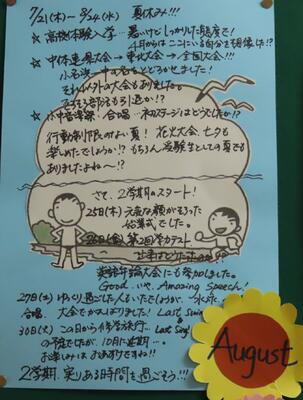 7/21(木)〜8/24(水) 夏休み!!!
☆高校体験入学…暑いけどしっかりした態度で!
4月からはここにいる自分を想像した!?
☆中体連県大会→東北大会→全国大会!!!
小名浜一中の名をとどろかせました!
それ以外の大会もありました。
合唱…
行動制限のない夏! 花火大会、七夕も
楽しめたでしょうか!? もちろん受験生としての夏でも
ありましたよね〜!?
さて、2学期のスタート!
25日(木)元気な顔がそろった
始業式でした。
26日(金)第2回学力テスト
弁論大会にも参加しました。
Good いや、Amazing Speech!
27日(土)ゆっくり過ごした人もいたでしょうが…水泳、
合唱 大会でがんばりました! Last Swim
& Last Song!
30日(火)この日から修学旅行…
の予定でしたが、10月に延期…。
お楽しみはおあずけですね!!
2学期、実りある時間を過ごそう!!!
August